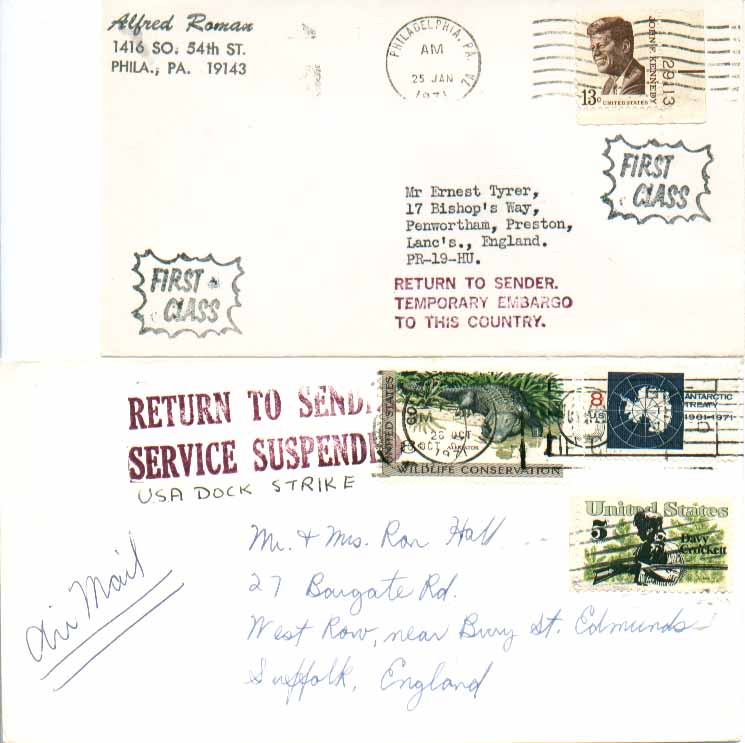 Alfred Roman
1416 SO. 54th ST.
PHILA., PA. 19143
PHILADELPHIA, PA.
AM
25 JAN
1971
JOHN F. KENNEDY
13c UNITED STATES
29113
FIRST
CLASS
Mr Ernest Tyrer,
17 Bishop's Way,
Penwortham, Preston,
Lanc's., England.
PR-19-HU.
RETURN TO SENDER.
TEMPORARY EMBARGO
TO THIS COUNTRY.
FIRST
CLASS
RETURN TO SENDE
SERVICE SUSPENDED
USA DOCK STRIKE
UNITED STATES
26 OCT
197
WILDLIFE CONSERVATION
8
US
ANTARCTIC
TREATY
1961-1971
United States
5
Davy
Crockett
Air Mail
Mr. & Mrs. Ron Hall
27 Bargate Rd.
West Row, near Bury St. Edmunds
Suffolk, England